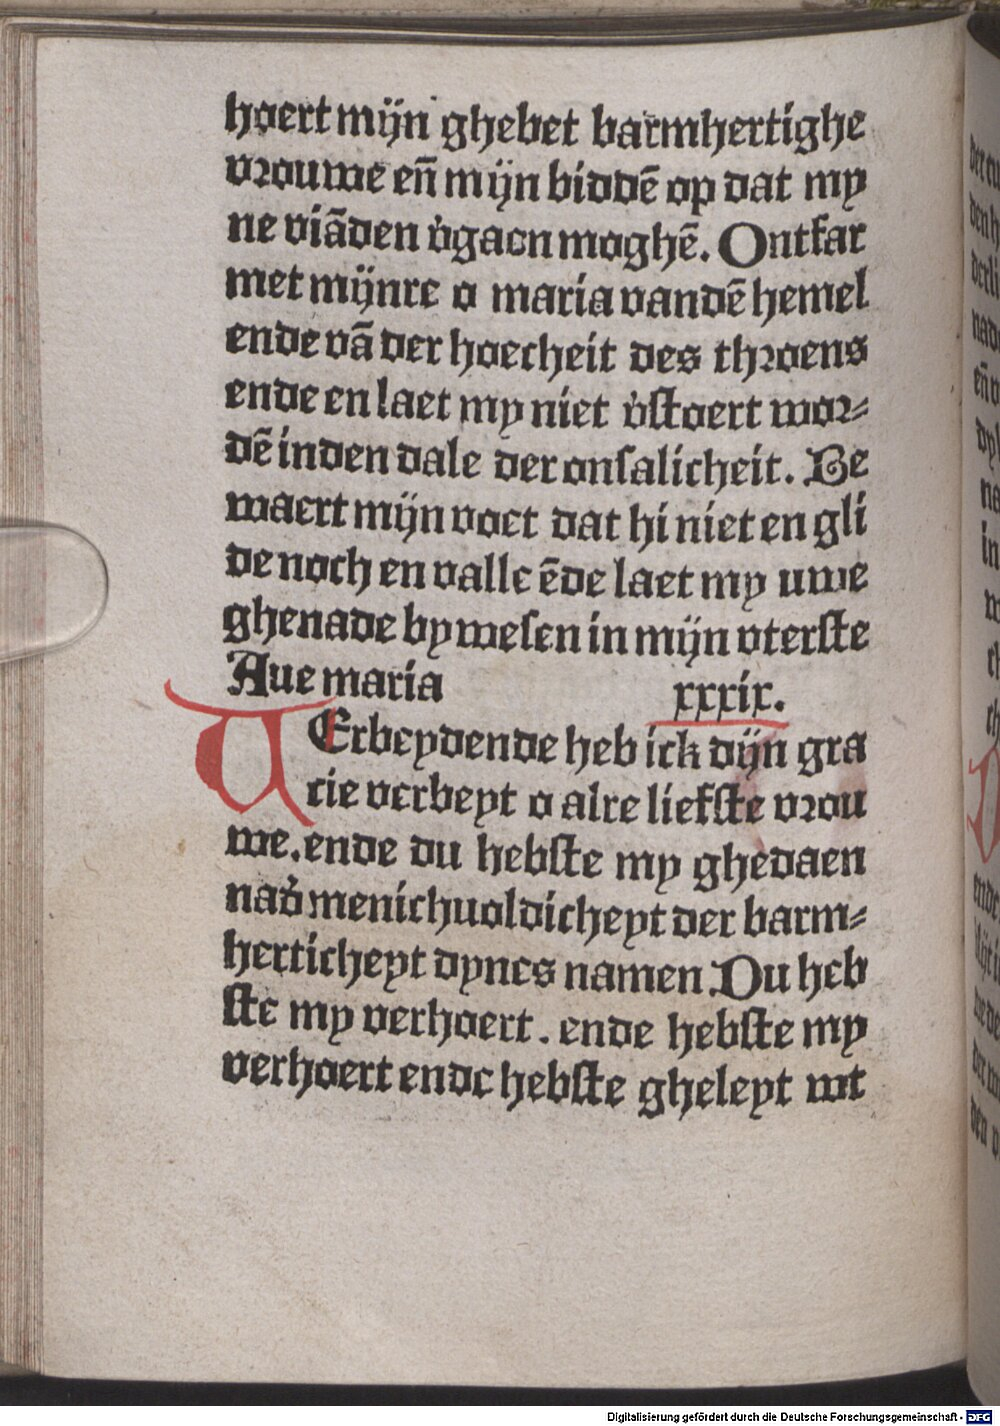 hoert mijn ghebet barmhertighe
vrouwe en̄ mijn biddē op dat my
ne viāden v̓gaen moghē. Ontfar
met mijnre o maria vandē hemel
ende vā der hoecheit des throens
ende en laet my niet v̓stoert wor⸗
dē inden dale der onſalicheit. Be
waert mijn voet dat hi niet en gli
de noch en valle ēde laet my uwe
ghenade by weſen in mijn vterſte
Aue maria xxxix.
VErbeydende heb ick dijn gra
cie verbeyt o alre liefſte vrou
we. ende du hebſte my ghedaen
nad̓ menichuoldicheyt der barm⸗
herticheyt dynes namen Du heb
ſte my verhoert. ende hebſte my
verhoert ende hebſte gheleyt wt
Digitalisierung gefördert durch die Deutsche Forschungsgemeinschaft - DFG